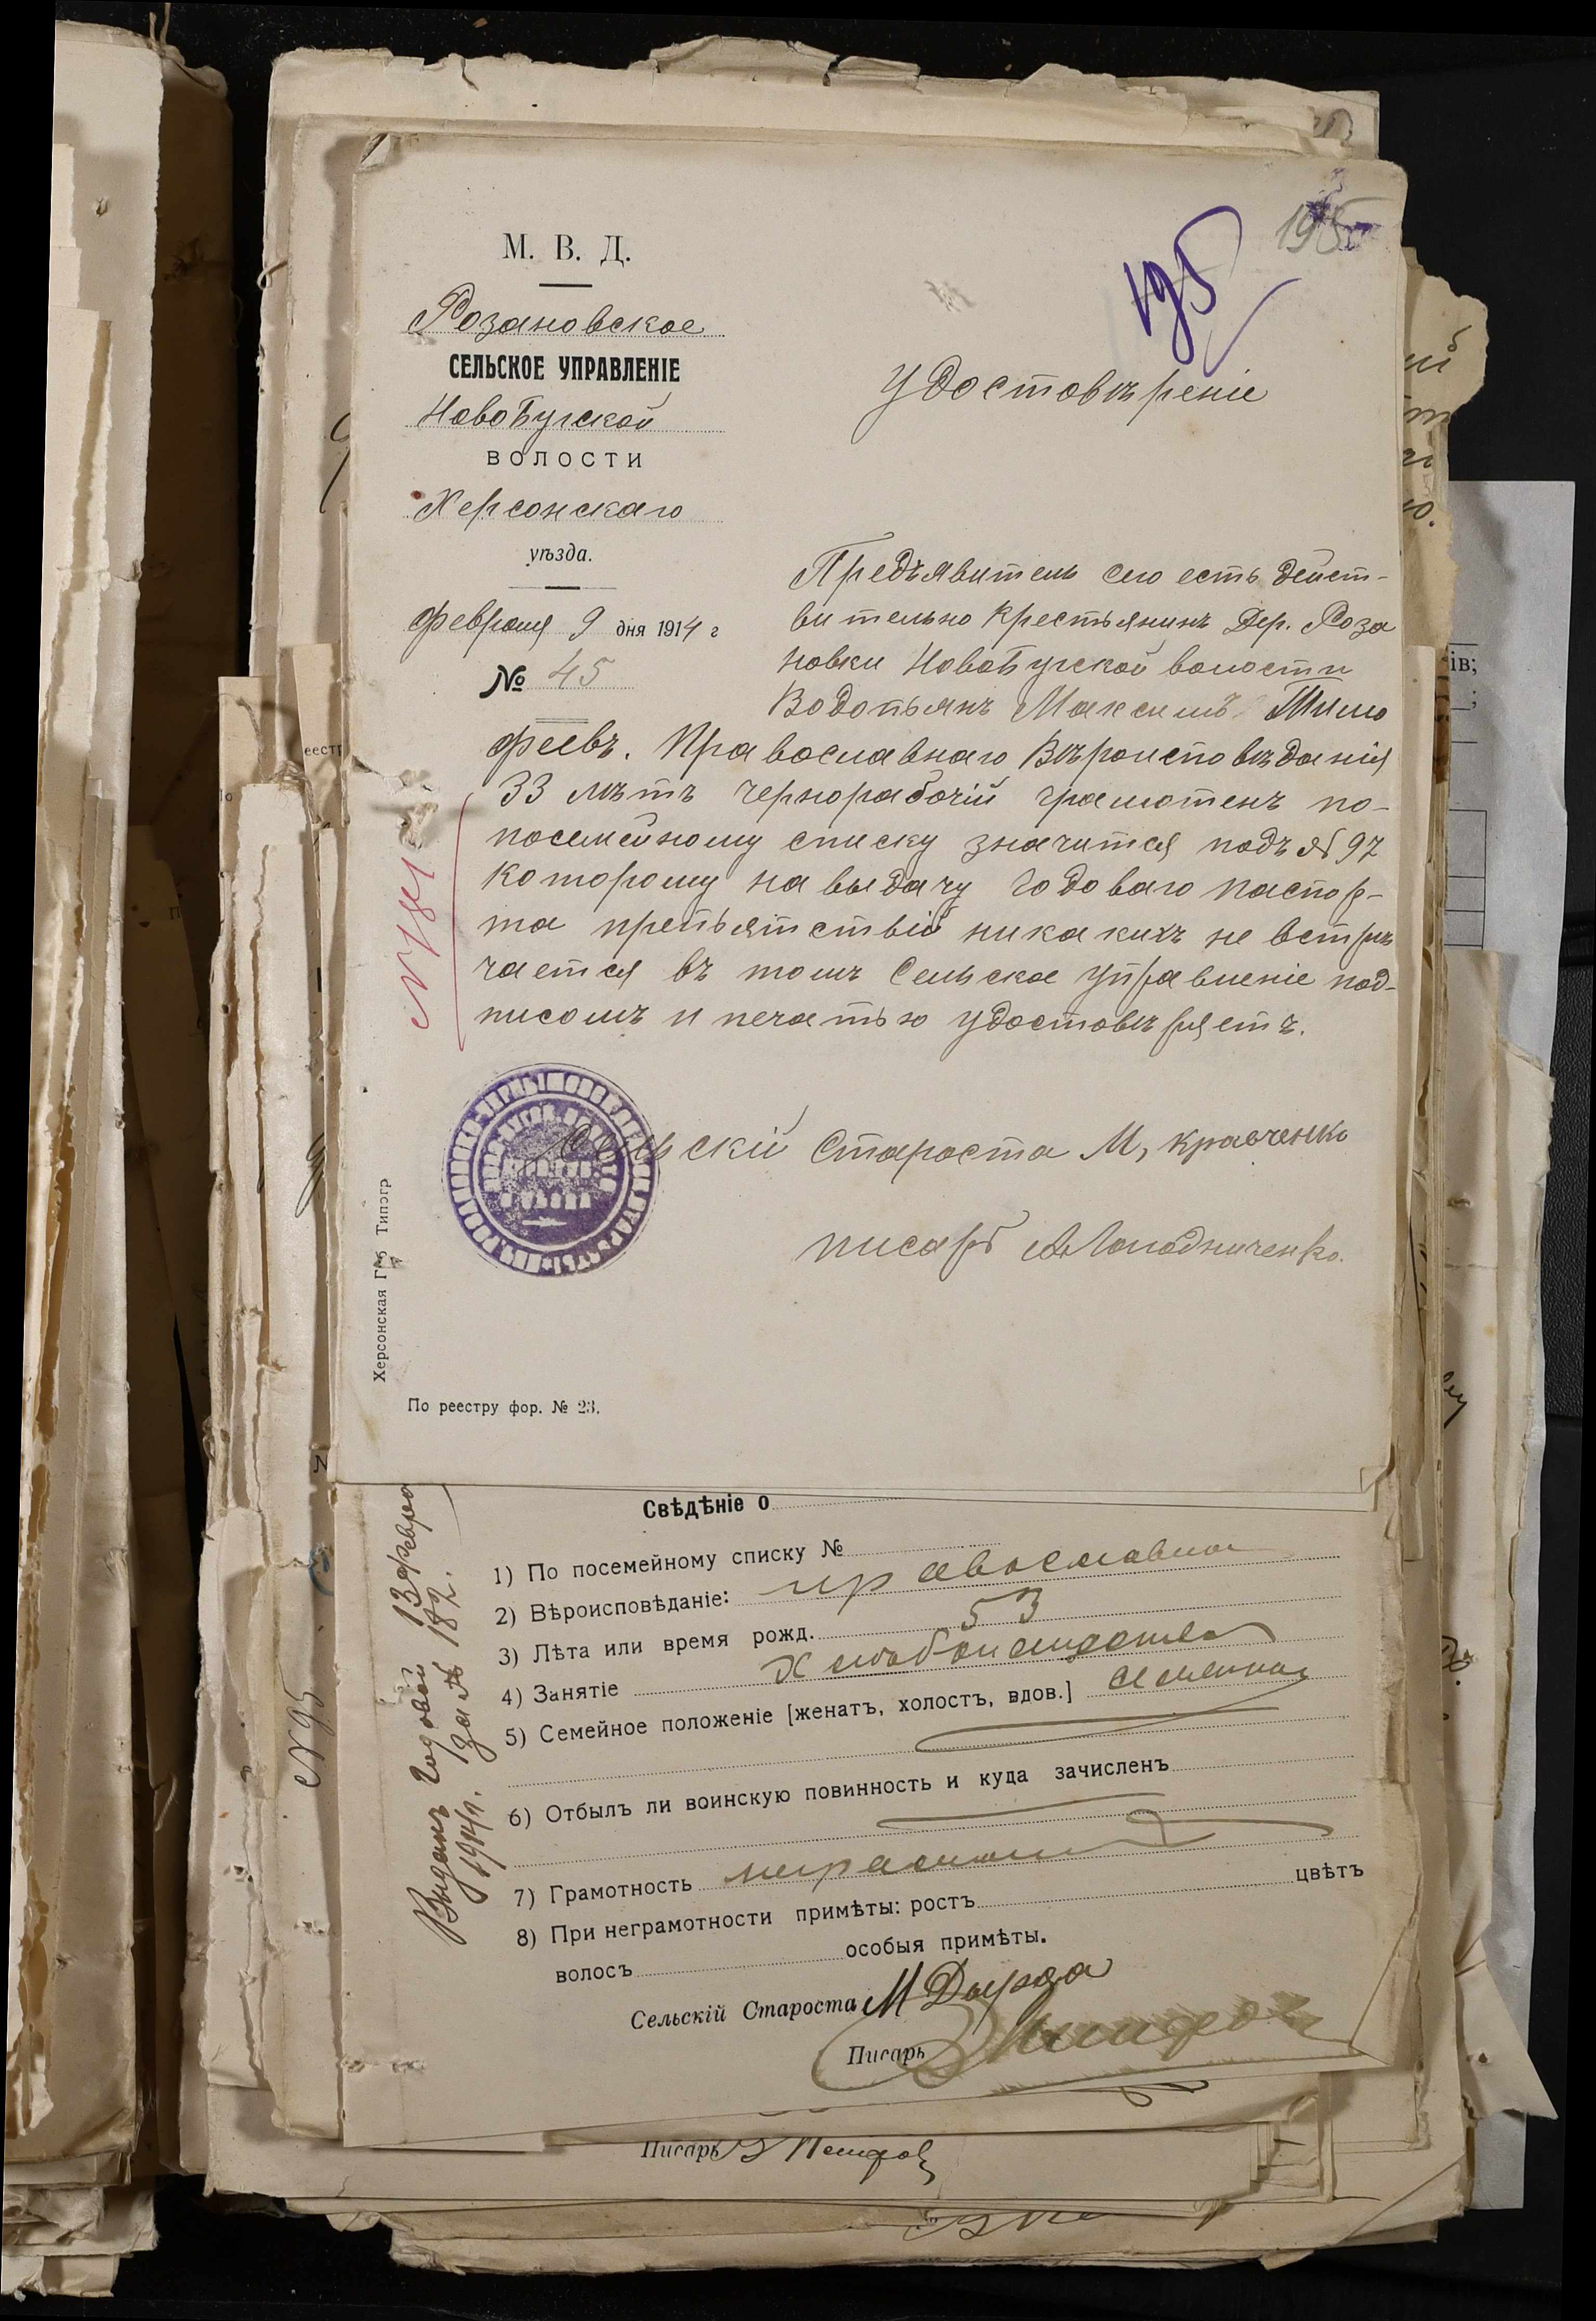 195
195
М. В. Д.
Розановское
СЕЛЬСКОЕ УПРАВЛЕНІЕ
НовоБугской
ВОЛОСТИ
Херсонскаго
уѣзда.
Февраля 9 дня 1914 г
№ 45
Удостовѣреніе
Предъявитель сего есть дейст-
вительно крестьянинъ Дер. Роза
новки НовоБугской волости
Водопьянъ Максимъ Тимо
феевъ. Православнаго Вѣроисповѣданія
33 лѣтъ чернорабочій грамотенъ по-
посемейному списку значится подъ № 97
которому на выдачу годоваго паспор-
та препьятствій никакихъ не встрѣ
чается въ томъ Сельское Управленіе под-
писомъ и печатью удостовѣряетъ.
Сельскій Староста М, Кравченко
писарь
Херсонская Губ Типогр
По реестру фор. № 23.
Свѣдѣніе о
1) По посемейному списку №
2) Вѣроисповѣданіе: православная
3) Лѣта или время рожд. 53
4) Занятіе
5) Семейное положеніе [женатъ, холостъ, вдов.]
6) Отбылъ ли воинскую повинность и куда зачисленъ
7) Грамотность
8) При неграмотности примѣты: ростъ цвѣтъ
волосъ особыя примѣты.
Сельскій Староста М
Писарь
Выданъ годовой 13 февра
1914 г. за № 182.
№ 95
Писарь